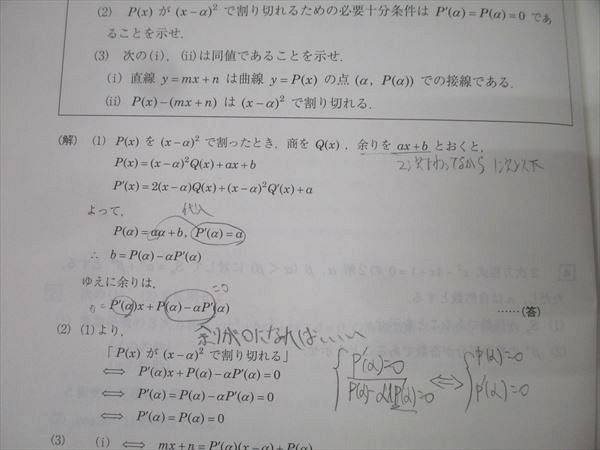 (2) P(x) が (x−α)² で割り切れるための必要十分条件は P′(α)=P(α)=0 であ
ることを示せ.
(3) 次の(i), (ii)は同値であることを示せ.
(i) 直線 y=mx+n は曲線 y=P(x) の点 (α, P(α)) での接線である.
(ii) P(x)−(mx+n) は (x−α)² で割り切れる.
(解) (1) P(x) を (x−α)² で割ったとき, 商を Q(x), 余りを ax+b とおくと,
2次でわってるから 1次以下
P(x)=(x−α)²Q(x)+ax+b
P′(x)=2(x−α)Q(x)+(x−α)²Q′(x)+a
よって, 代入
P(α)=aα+b, P′(α)=a
∴ b=P(α)−αP′(α)
ゆえに余りは, =0
P′(α)x+P(α)−αP′(α) ……(答)
余りが0になれば
(2) (1)より,
「P(x) が (x−α)² で割り切れる」
⟺ P′(α)x+P(α)−αP′(α)=0
⟺ P′(α)=P(α)−αP′(α)=0
⟺ P′(α)=P(α)=0
P′(α)=0 ⟺ P(α)=0
P(α)−αP′(α)=0 P′(α)=0
(3) (i) ⟺ mx+n=P′(α)(x−α)+P(α)